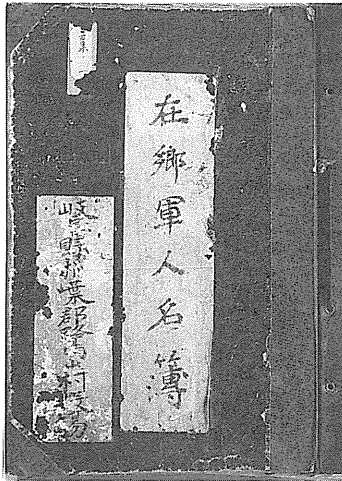 在郷軍人名簿
岐阜縣稲葉郡鷺山村役場